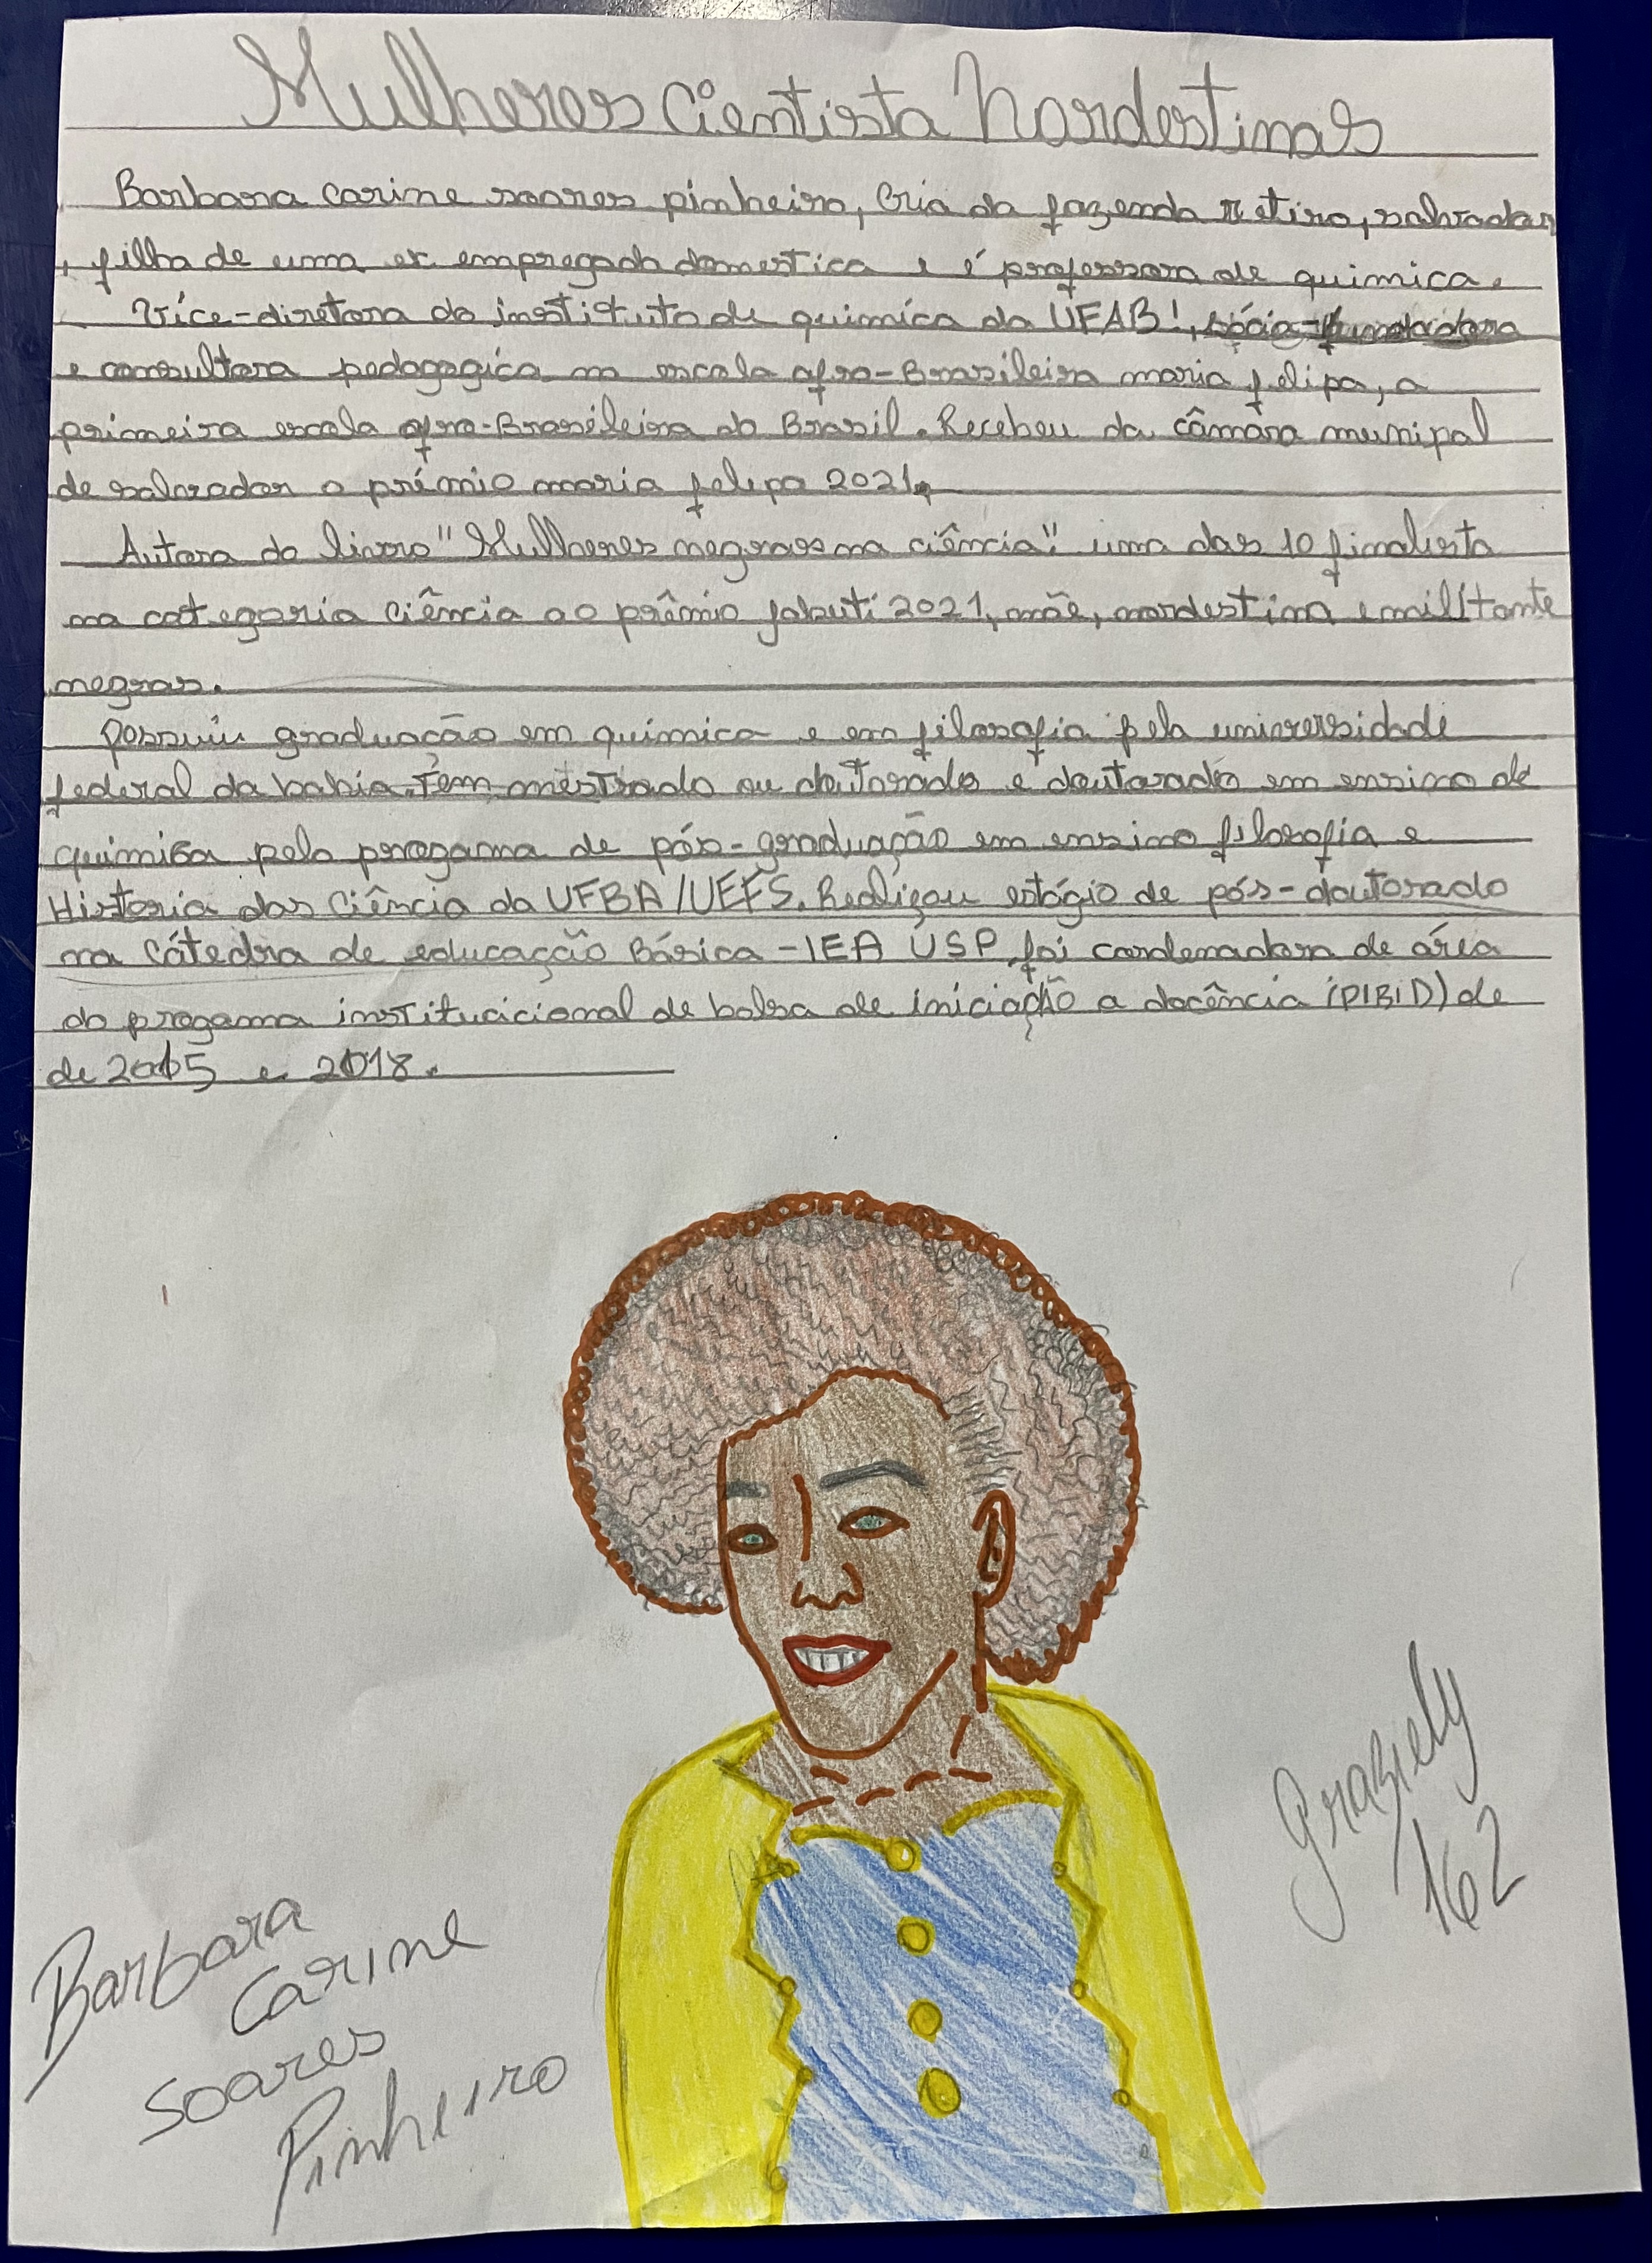 Mulheres Cientista Nordestinas
Barbara Carine soares pinheiro, Cria da fazenda Retiro, salvador
, filha de uma ex empregada domestica e é professora de quimica.
Vice-diretora do instituto de química da UFAB!, sócia-fundadora
e consultora pedagogica na escola afro-Brasileira maria felipa, a
primeira escola afro-Brasileira do Brasil. Recebeu da câmara munipal
de salvador o prémio maria felipa 2021.
Autora do livro "Mulheres negras na ciência". uma das 10 finalista
na categoria ciência ao prêmio jabuti 2021, mãe, nordestina e militante
negras.
Possuiu graduação em química e em filosofia pela universidade
federal da bahia. Tem mestrado ou doutorado e doutorado em ensino de
quimica pelo progama de pós-graduação em ensino filosofia e
Historia das Ciência da UFBA/UEFS. Realizou estágio de pós-doutorado
na Cátedra de educação Básica - IEA USP, foi cordenadora de área
do progama institucicional de bolsa de iniciação a docência (PIBID) de
de 2015 e 2018.
Barbara
Carine
Soares
Pinheiro
Grazielly
162